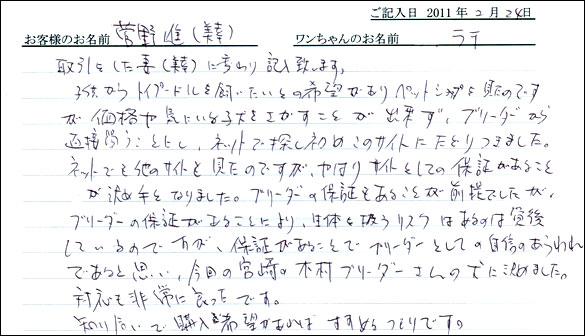 ご記入日 2011年2月24日
お客様のお名前 菅野 進(美幸) ワンちゃんのお名前 ラテ
取引をした妻(美幸)に変わり記入致します。
子供からトイプードルを飼いたいとの希望がありペットショップは見たのです
が価格や気にいる子犬をさがすことが出来ず、ブリーダーから
直接買うことにし、ネットで探し初めこのサイトにたどりつきました。
ネットでも他のサイトを見たのですが、やはりサイトとしての保証があること
が決め手となりました。ブリーダーの保証もあることが前提でしたが、
ブリーダーの保証があることにより、生体を扱うリスクはあるのは
しているのですが、保証があることでブリーダーとしての自信のあらわれ
であると思い、今回の宮崎の木村ブリーダーさんの犬に決めました。
対応も非常に良かったです。
知り合いで購入希望があればすすめるつもりです。